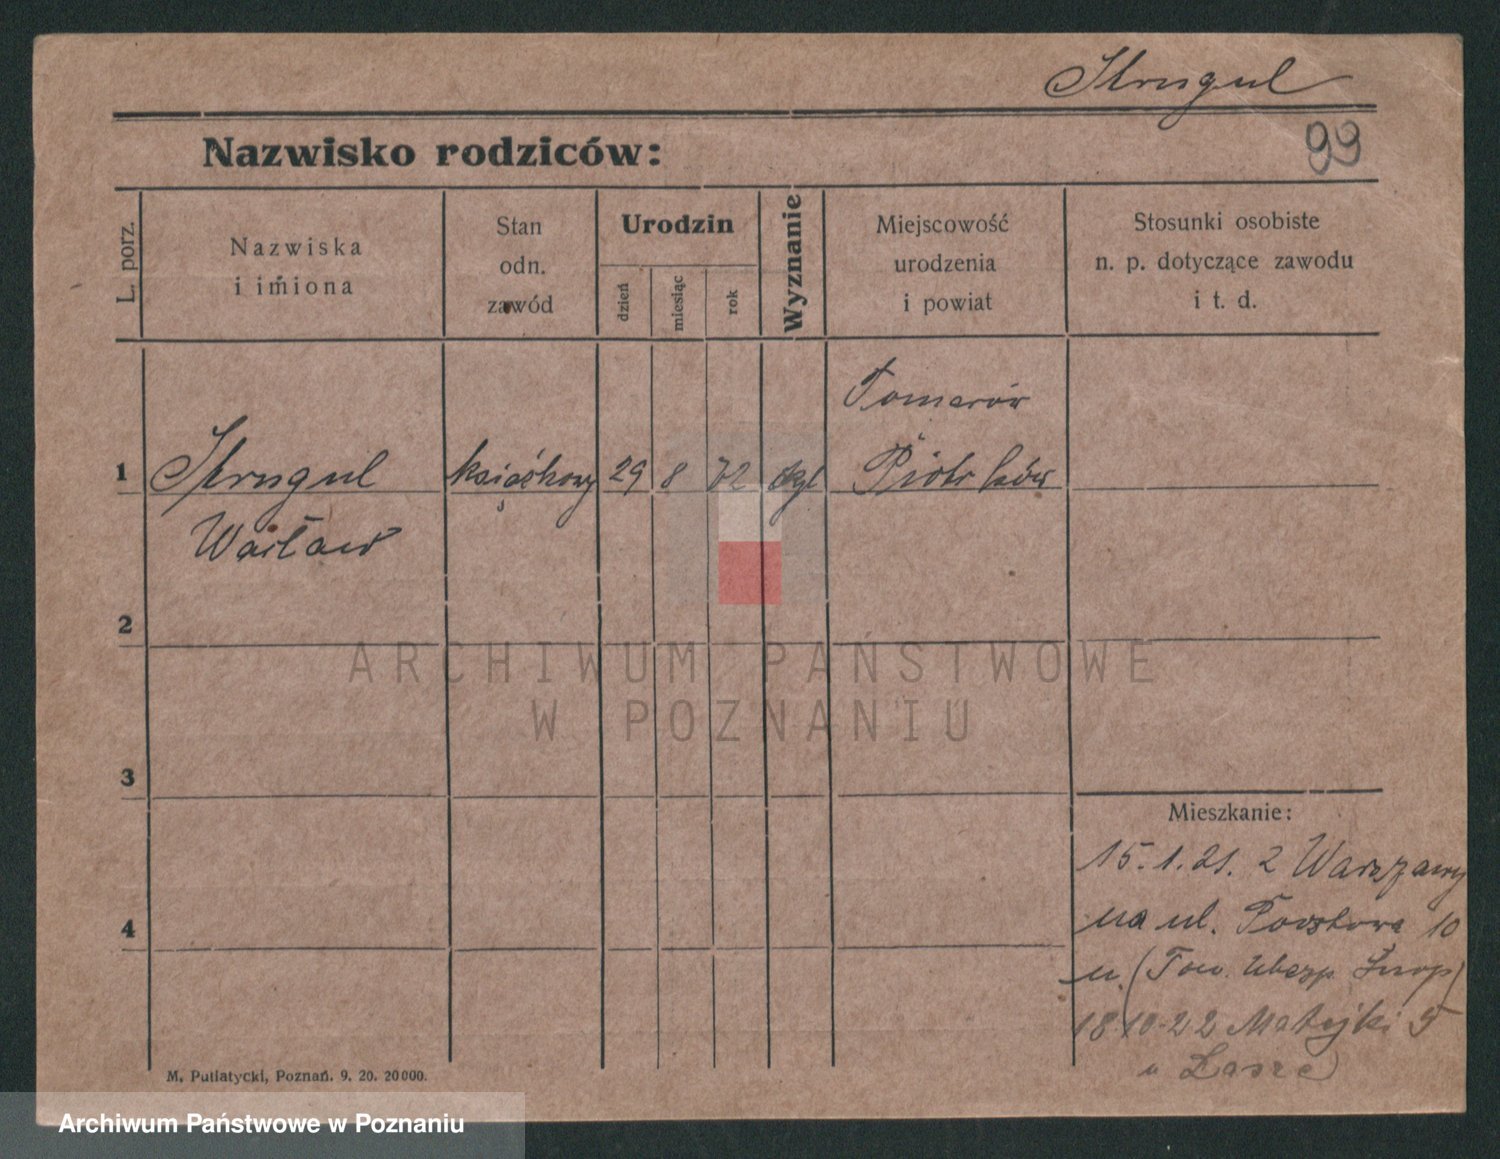 Strugul
99
Nazwisko rodziców:
L. porz.
Nazwiska
i imiona
Stan
odn.
zawód
Urodzin
dzień
miesiąc
rok
Wyznanie
Miejscowość
urodzenia
i powiat
Stosunki osobiste
n. p. dotyczące zawodu
i t. d.
1
Strugul
Wacław
29
8
72
Piotrków
2
3
4
Mieszkanie:
15.1.21. z Warszawy
na ul. Pocztowa 10
u (Tow. Ubezp. Snop)
18 10.22 Matejki 5
u
M. Putiatycki, Poznań. 9. 20. 20000.
ARCHIWUM PAŃSTWOWE
W POZNANIU
Archiwum Państwowe w Poznaniu